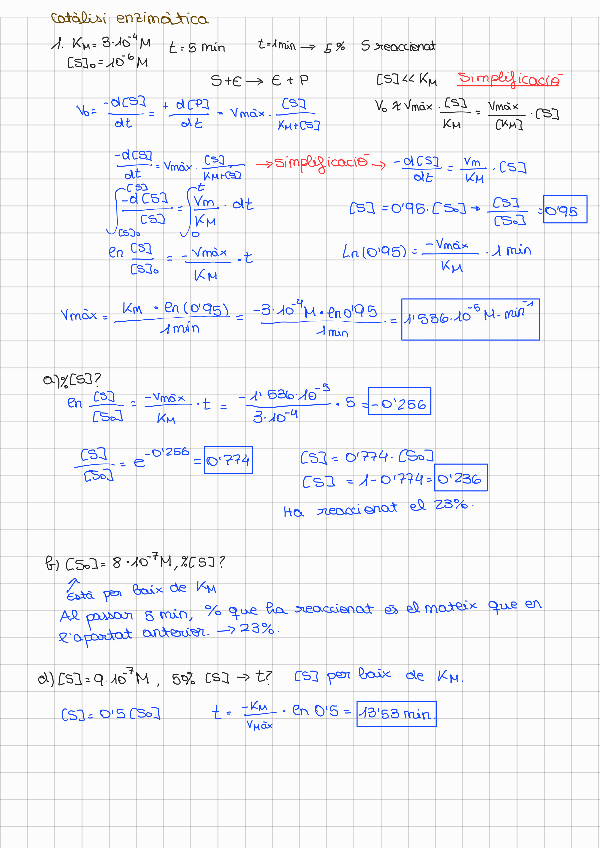 catàlisi enzimàtica
1. KM = 3·10⁻⁴M t = 5 min t = 1min → 5% S reaccionat
[S]₀ = 10⁻⁶M
S+E → E + P [S] << KM Simplificació
V₀ = -d[S]/dt = +d[P]/dt = Vmàx · [S]/KM+[S] V₀ ≈ Vmàx · [S]/KM = Vmàx/[KM] · [S]
-d[S]/dt = Vmàx · [S]/KM+[S] → simplificació → -d[S]/dt = Vm/KM · [S]
∫[S]₀^[S] -d[S]/[S] = ∫0^t Vm/KM · dt [S] = 0'95 · [S₀] → [S]/[S₀] = 0'95
ln [S]/[S]₀ = -Vmàx/KM · t Ln(0'95) = -Vmàx/KM · 1 min
Vmàx = KM · ln(0'95)/1min = -3·10⁻⁴M · ln0'95/1min = 1'536·10⁻⁵ M·min⁻¹
a) %[S]?
ln [S]/[S₀] = -Vmàx/KM · t = -1'536·10⁻⁵/3·10⁻⁴ · 5 = -0'256
[S]/[S₀] = e^-0'256 = 0'774 [S] = 0'774 · [S₀]
[S] = 1 - 0'774 = 0'236
Ha reaccionat el 23%.
b) [S₀] = 8·10⁻⁷M, %[S]?
Està per baix de KM
Al passar 5 min, % que ha reaccionat és el mateix que en
l'apartat anterior. → 23%.
d) [S] = 9·10⁻⁷M, 50% [S] → t? [S] per baix de KM.
[S] = 0'5 [S₀] t = -KM/VMàx · ln 0'5 = 13'53 min.